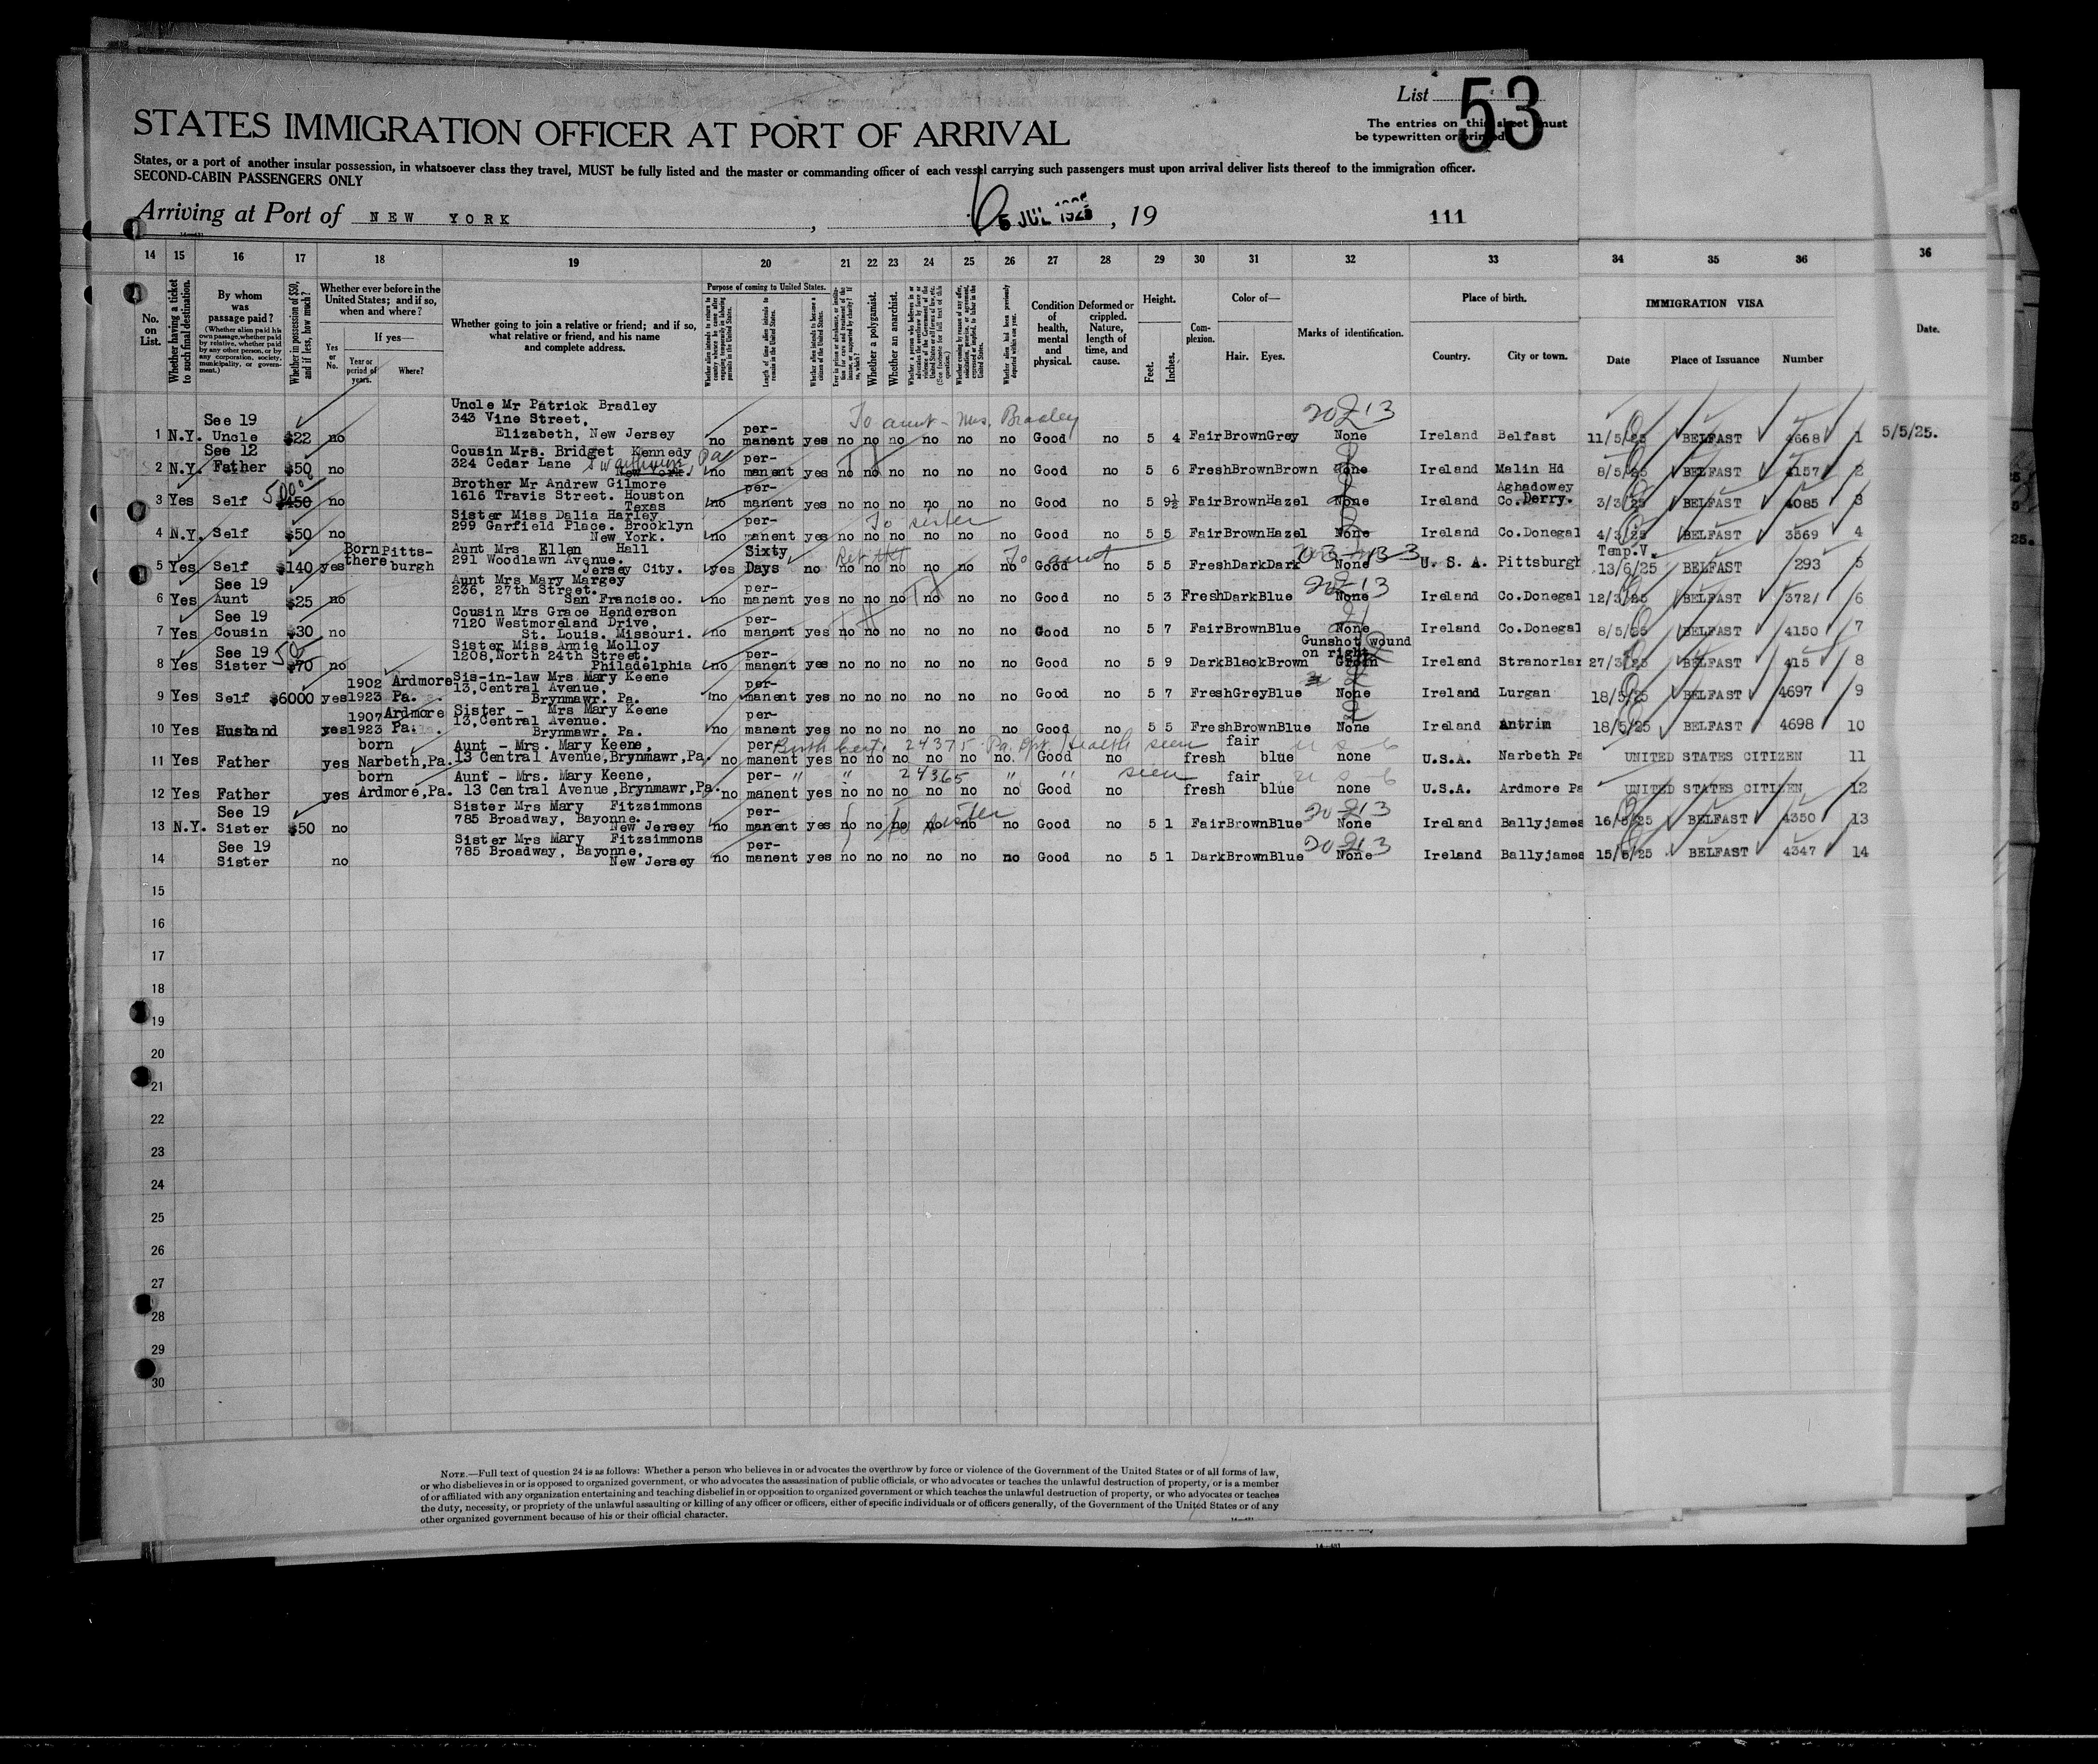 List 53
The entries on this sheet must
be typewritten or printed
STATES IMMIGRATION OFFICER AT PORT OF ARRIVAL
States, or a port of another insular possession, in whatsoever class they travel, MUST be fully listed and the master or commanding officer of each vessel carrying such passengers must upon arrival deliver lists thereof to the immigration officer.
SECOND-CABIN PASSENGERS ONLY
Arriving at Port of NEW YORK, 6 JUL 1925, 19
111
14 15 16 17 18 19 20 21 22 23 24 25 26 27 28 29 30 31 32 33 34 35 36 36
No. on List.
Whether having a ticket to such final destination.
By whom was passage paid?
(Whether alien paid his own passage, whether paid by relative, whether paid by any other person, or by any corporation, society, municipality, or government.)
Whether in possession of $50, and if less, how much?
Whether ever before in the United States; and if so, when and where?
Yes or No.
If yes—
Year or period of years.
Where?
Whether going to join a relative or friend; and if so, what relative or friend, and his name and complete address.
Purpose of coming to United States.
Length of time alien intends to remain in the United States.
Whether alien intends to become a citizen of the United States.
Whether a polygamist.
Whether an anarchist.
Condition of health, mental and physical.
Deformed or crippled. Nature, length of time, and cause.
Height.
Feet. Inches.
Complexion.
Color of—
Hair. Eyes.
Marks of identification.
Place of birth.
Country. City or town.
IMMIGRATION VISA
Date Place of Issuance Number
Date.
Uncle Mr Patrick Bradley
See 19 343 Vine Street, To aunt - Mrs. Bradley 20 £ 13
1 N.Y. Uncle $22 no Elizabeth, New Jersey no per-manent yes no no no no no no Good no 5 4 Fair Brown Grey None Ireland Belfast 11/5/25 BELFAST 4668 1 5/5/25.
See 12 Cousin Mrs. Bridget Kennedy
2 N.Y. Father $50 no 324 Cedar Lane Swarthmore, Pa New York. no per-manent yes no no no no no no Good no 5 6 Fresh Brown Brown None Ireland Malin Hd 8/5/25 BELFAST 4157 2
Brother Mr Andrew Gilmore
3 Yes Self 5000 $450 no 1616 Travis Street. Houston Texas no per-manent yes no no no no no no Good no 5 9½ Fair Brown Hazel None Ireland Aghadowey Co.Derry. 3/3/25 BELFAST 4085 3
Sister Miss Dalia Harley
299 Garfield Place. Brooklyn To sister
4 N.Y. Self $50 no New York. no per-manent yes no no no no no no Good no 5 5 Fair Brown Hazel None Ireland Co.Donegal 4/3/25 BELFAST 3569 4
Born there Pitts-burgh Aunt Mrs Ellen Hall
5 Yes Self $140 yes 291 Woodlawn Avenue. Jersey City. yes Sixty Days no no no no no no no To aunt Good no 5 5 Fresh Dark Dark None U. S. A. Pittsburgh Temp.V. 13/6/25 BELFAST 293 5
See 19 Aunt Mrs Mary Margey
236, 27th Street. 20 £ 13
6 Yes Aunt $25 no San Francisco. no per-manent yes no no no no no no Good no 5 3 Fresh Dark Blue None Ireland Co.Donegal 12/3/25 BELFAST 3721 6
See 19 Cousin Mrs Grace Henderson
7120 Westmoreland Drive,
7 Yes Cousin $30 no St. Louis. Missouri. no per-manent yes no no no no no no Good no 5 7 Fair Brown Blue None Ireland Co.Donegal 8/5/25 BELFAST 4150 7
See 19 Sister Miss Annie Molloy Gunshot wound
1208, North 24th Street. on right
8 Yes Sister 50 $70 no Philadelphia no per-manent yes no no no no no no Good no 5 9 Dark Black Brown Groin Ireland Stranorlar 27/3/25 BELFAST 415 8
1902 Ardmore Sis-in-law Mrs Mary Keene
13, Central Avenue,
9 Yes Self $6000 yes 1923 Pa. Brynmawr. Pa. no per-manent yes no no no no no no Good no 5 7 Fresh Grey Blue None Ireland Lurgan 18/5/25 BELFAST 4697 9
1907 Ardmore Sister - Mrs Mary Keene
13, Central Avenue.
10 Yes Husband yes 1923 Pa. Brynmawr. Pa. no per-manent yes no no no no no no Good no 5 5 Fresh Brown Blue None Ireland Antrim 18/5/25 BELFAST 4698 10
born Aunt - Mrs. Mary Keene, Birth Cert. 24375 Pa. Dpt. Health seen
11 Yes Father yes Narbeth, Pa. 13 Central Avenue, Brynmawr, Pa. no per-manent yes no no no no no no. Good no fresh fair blue none U.S.A. Narbeth Pa UNITED STATES CITIZEN 11
born Aunt - Mrs. Mary Keene, " " 24365 " " seen
12 Yes Father yes Ardmore, Pa. 13 Central Avenue, Brynmawr, Pa. no per-manent yes no no no no no no Good no fresh fair blue none U.S.A. Ardmore Pa UNITED STATES CITIZEN 12
See 19 Sister Mrs Mary Fitzsimmons
785 Broadway, Bayonne. to sister 20 £ 13
13 N.Y. Sister $50 no New Jersey no per-manent yes no no no no no no Good no 5 1 Fair Brown Blue None Ireland Ballyjames 16/5/25 BELFAST 4350 13
See 19 Sister Mrs Mary Fitzsimmons
785 Broadway, Bayonne, 20 £ 13
14 Sister no New Jersey no per-manent yes no no no no no no Good no 5 1 Dark Brown Blue None Ireland Ballyjames 15/5/25 BELFAST 4347 14
15
16
17
18
19
20
21
22
23
24
25
26
27
28
29
30
NOTE.—Full text of question 24 is as follows: Whether a person who believes in or advocates the overthrow by force or violence of the Government of the United States or of all forms of law,
or who disbelieves in or is opposed to organized government, or who advocates the assassination of public officials, or who advocates or teaches the unlawful destruction of property, or is a member
of or affiliated with any organization entertaining and teaching disbelief in or opposition to organized government or which teaches the unlawful destruction of property, or who advocates or teaches
the duty, necessity, or propriety of the unlawful assaulting or killing of any officer or officers, either of specific individuals or of officers generally, of the Government of the United States or of any
other organized government because of his or their official character.